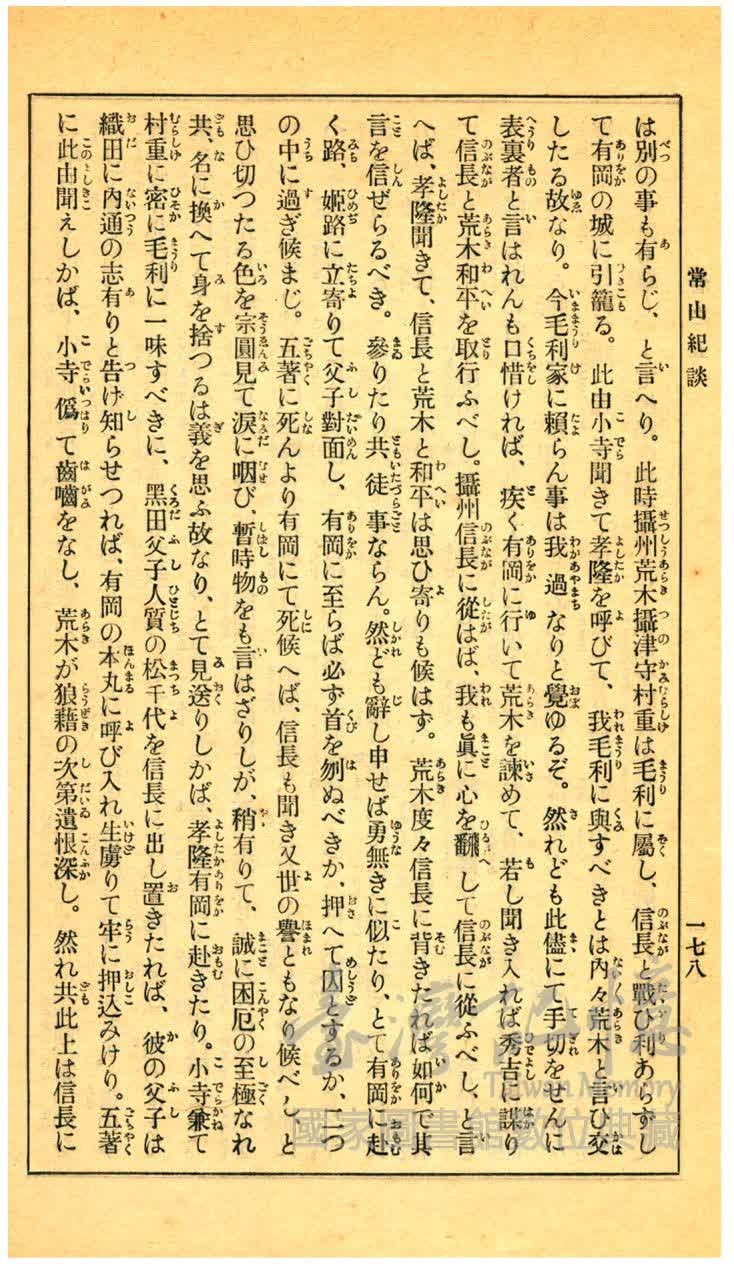 常山紀談
一七八
は別の事も有らじ、と言へり。此時攝州荒木攝津守村重は毛利に屬し、信長と戰ひ利あらずし
て有岡の城に引籠る。此由小寺聞きて孝隆を呼びて、我毛利に與すべきとは內々荒木と言ひ交
したる故なり。今毛利家に賴らん事は我過なりと覺ゆるぞ。然れども此儘にて手切をせんに
表裏者と言はれんも口惜ければ、疾く有岡に行いて荒木を諫めて、若し聞き入れば秀吉に謀り
て信長と荒木和平を取行ふべし。攝州信長に從はば、我も眞に心を飜して信長に從ふべし、と言
へば、孝隆聞きて、信長と荒木と和平は思ひ寄りも候はず。荒木度々信長に背きたれば如何で其
言を信ぜらるべき。參りたり共徒事ならん。然ども辭し申せば勇無きに似たり、とて有岡に赴
く路、姬路に立寄りて父子對面し、有岡に至らば必ず首を刎ぬべきか、押へて囚とするか、二つ
の中に過ぎ候まじ。五著に死んより有岡にて死候へば、信長も聞き又世の譽ともなり候べし、と
思ひ切つたる色を宗圓見て淚に咽び、暫時物をも言はざりしが、稍有りて、誠に困厄の至極なれ
共、名に換へて身を捨つるは義を思ふ故なり、とて見送りしかば、孝隆有岡に赴きたり。小寺兼て
村重に密に毛利に一味すべきに、黑田父子人質の松千代を信長に出し置きたれば、彼の父子は
織田に內通の志有りと告げ知らせつれば、有岡の本丸に呼び入れ生虜りて牢に押込みけり。五著
に此由聞えしかば、小寺僞て齒嚙をなし、荒木が狼藉の次第遺恨深し。然れ共此上は信長に
臺灣記憶
Taiwan Memory
國家圖書館數位典藏